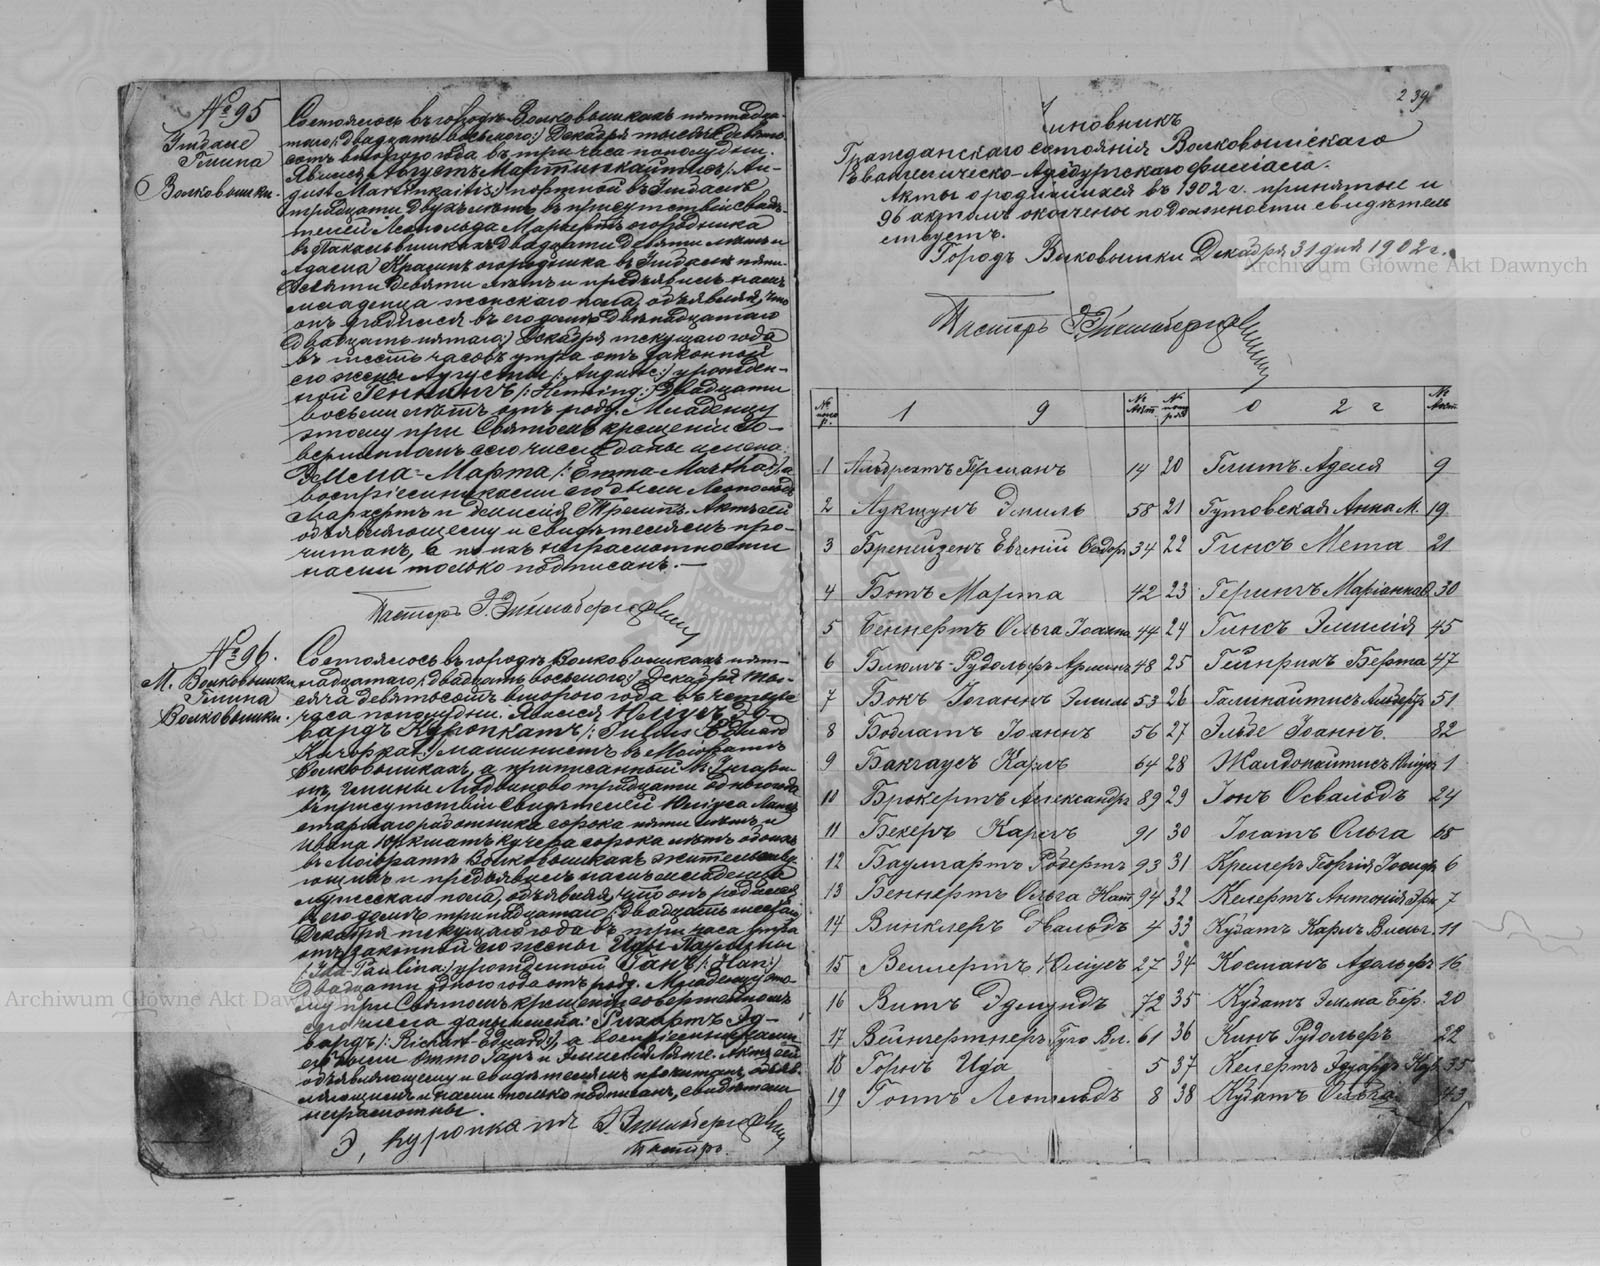 № 95
Гмина
Волковышки.
Состоялось въ городѣ Волковышкахъ пятнадца-
таго /: двадцать восьмого :/ Декабря тысяча девять-
сотъ второго года въ три часа пополудни.
Явился Августъ Мартинкайтисъ /: Au-
gust Martinkaitis :/ портной въ
тридцати двухъ лѣтъ, въ присутствіи свидѣ-
телей Леопольда Маркертъ огородника
двадцати девяти лѣтъ и
Адама огородника въ пяти-
десяти девяти лѣтъ и предъявилъ намъ
младенца женскаго пола, объявляя, что
онъ родился въ его домѣ двѣнадцатаго
/: двадцать пятаго :/ Декабря текущаго года
въ шесть часовъ утра отъ законной
его жены Августы /: Auguste :/ урожден-
ной Геннингъ /: Henning :/ двадцати
восьми лѣтъ отъ роду. Младенцу
этому при Святомъ крещеніи со-
вершонномъ сего числа даны имена:
Эмма-Марта /: Emma-Martha :/ а
воспріемниками его были Леопольдъ
Маркертъ и Актъ сей
объявляющему и свидѣтелямъ про-
читанъ, а по ихъ неграмотности
нами только подписанъ. —
Пасторъ
№ 96.
М. Волковышки
Гмина
Волковышки.
Состоялось въ городѣ Волковышкахъ пят-
надцатаго /: двадцать восьмого :/ Декабря ты-
сяча девятьсотъ второго года въ четыре
часа пополудни. Явился Юліусъ Эд-
вардъ Куропкатъ /: Julius Eduard
машинистъ въ Маіоратѣ
Волковышкахъ, а приписанный къ
гмины Людвиново тридцати одного года
въ присутствіи свидѣтелей Юліуса
работника сорока пяти лѣтъ и
Ивана кучера сорока лѣтъ обоихъ
въ Маіоратѣ Волковышкахъ жительству-
ющихъ и предъявилъ намъ младенца
мужескаго пола, объявляя, что онъ родился
въ его домѣ тринадцатаго /: двадцать шестаго :/
Декабря текущаго года въ три часа утра
отъ законной его жены Иды Паулины
/: Ida-Paulina :/ урожденной Ганъ /: Han :/
двадцати одного года отъ роду. Младенцу это-
му при Святомъ крещеніи совершонномъ
сего числа даны имена: Рихартъ Эд-
вардъ /: Richart-Eduard :/, а воспріемниками
его были Отто Ганъ и Эмилія Актъ сей
объявляющему и свидѣтелямъ прочитанъ, объяв-
ляющимъ и нами только подписанъ, свидѣтели
неграмотны.
Э, Куропкатъ
Пасторъ.
239
Чиновникъ
Гражданскаго состоянія Волковышскаго
Евангелическо-Аугсбургскаго филіала.
Акты о родившихся въ 1902 г. принятые и
96 актомъ окончены по должности свидѣтель-
ствуетъ.
Городъ Волковышки Декабря 31 дня 1902 г.
Archiwum Główne Akt Dawnych
Пасторъ
№ 1 9 № Акт. № 0 2 г № Акт.
1 Альбрехтъ Германъ 14 20 Гешть Аделя 9
2 Аукщунъ Эмиль 58 21 Гутовская Анна М. 19
3 Бренйзенъ Евгеній 34 22 Гинсъ Мета 21
4 Ботъ Марта 42 23 Герингъ Маріанна 30
5 Беннертъ Ольга Іоанна 44 24 Гинсъ Эмилія 45
6 Блюмъ-Рудольфъ Арминъ 48 25 Гейнрихъ Берта 47
7 Бокъ Іоганнъ Эмиль 53 26 Галинайтисъ Альбертъ 51
8 Бодматъ Іоаннъ 56 27 Эльде Іоаннъ. 82
9 Бакгаусъ Карлъ 64 28 Жалдокайтисъ 1
10 Брокертъ Александръ 89 29 Іонъ Освальдъ 24
11 Бекеръ Карлъ 91 30 Іогатъ Ольга 65
12 Баумгартъ Робертъ 93 31 Кремеръ Георгій 6
13 Беннертъ Ольга Нат 94 32 Келертъ Антонія 7
14 Винклеръ Эвальдъ 4 33 Кубатъ Карлъ Вильг. 11
15 Веллертъ Юліусъ 27 34 Косманъ Адольфъ 16
16 Витъ Эдмундъ 72 35 Кубатъ Эмма Бер. 20
17 Вейнгертнеръ Гуго Вл. 61 36 Кинъ Рудольфъ 22
18 Горнъ Ида 5 37 Келертъ Эдуардъ 35
19 Готтъ Леопольдъ 8 38 Кубатъ Ольга 43
Archiwum Główne Akt Dawnych